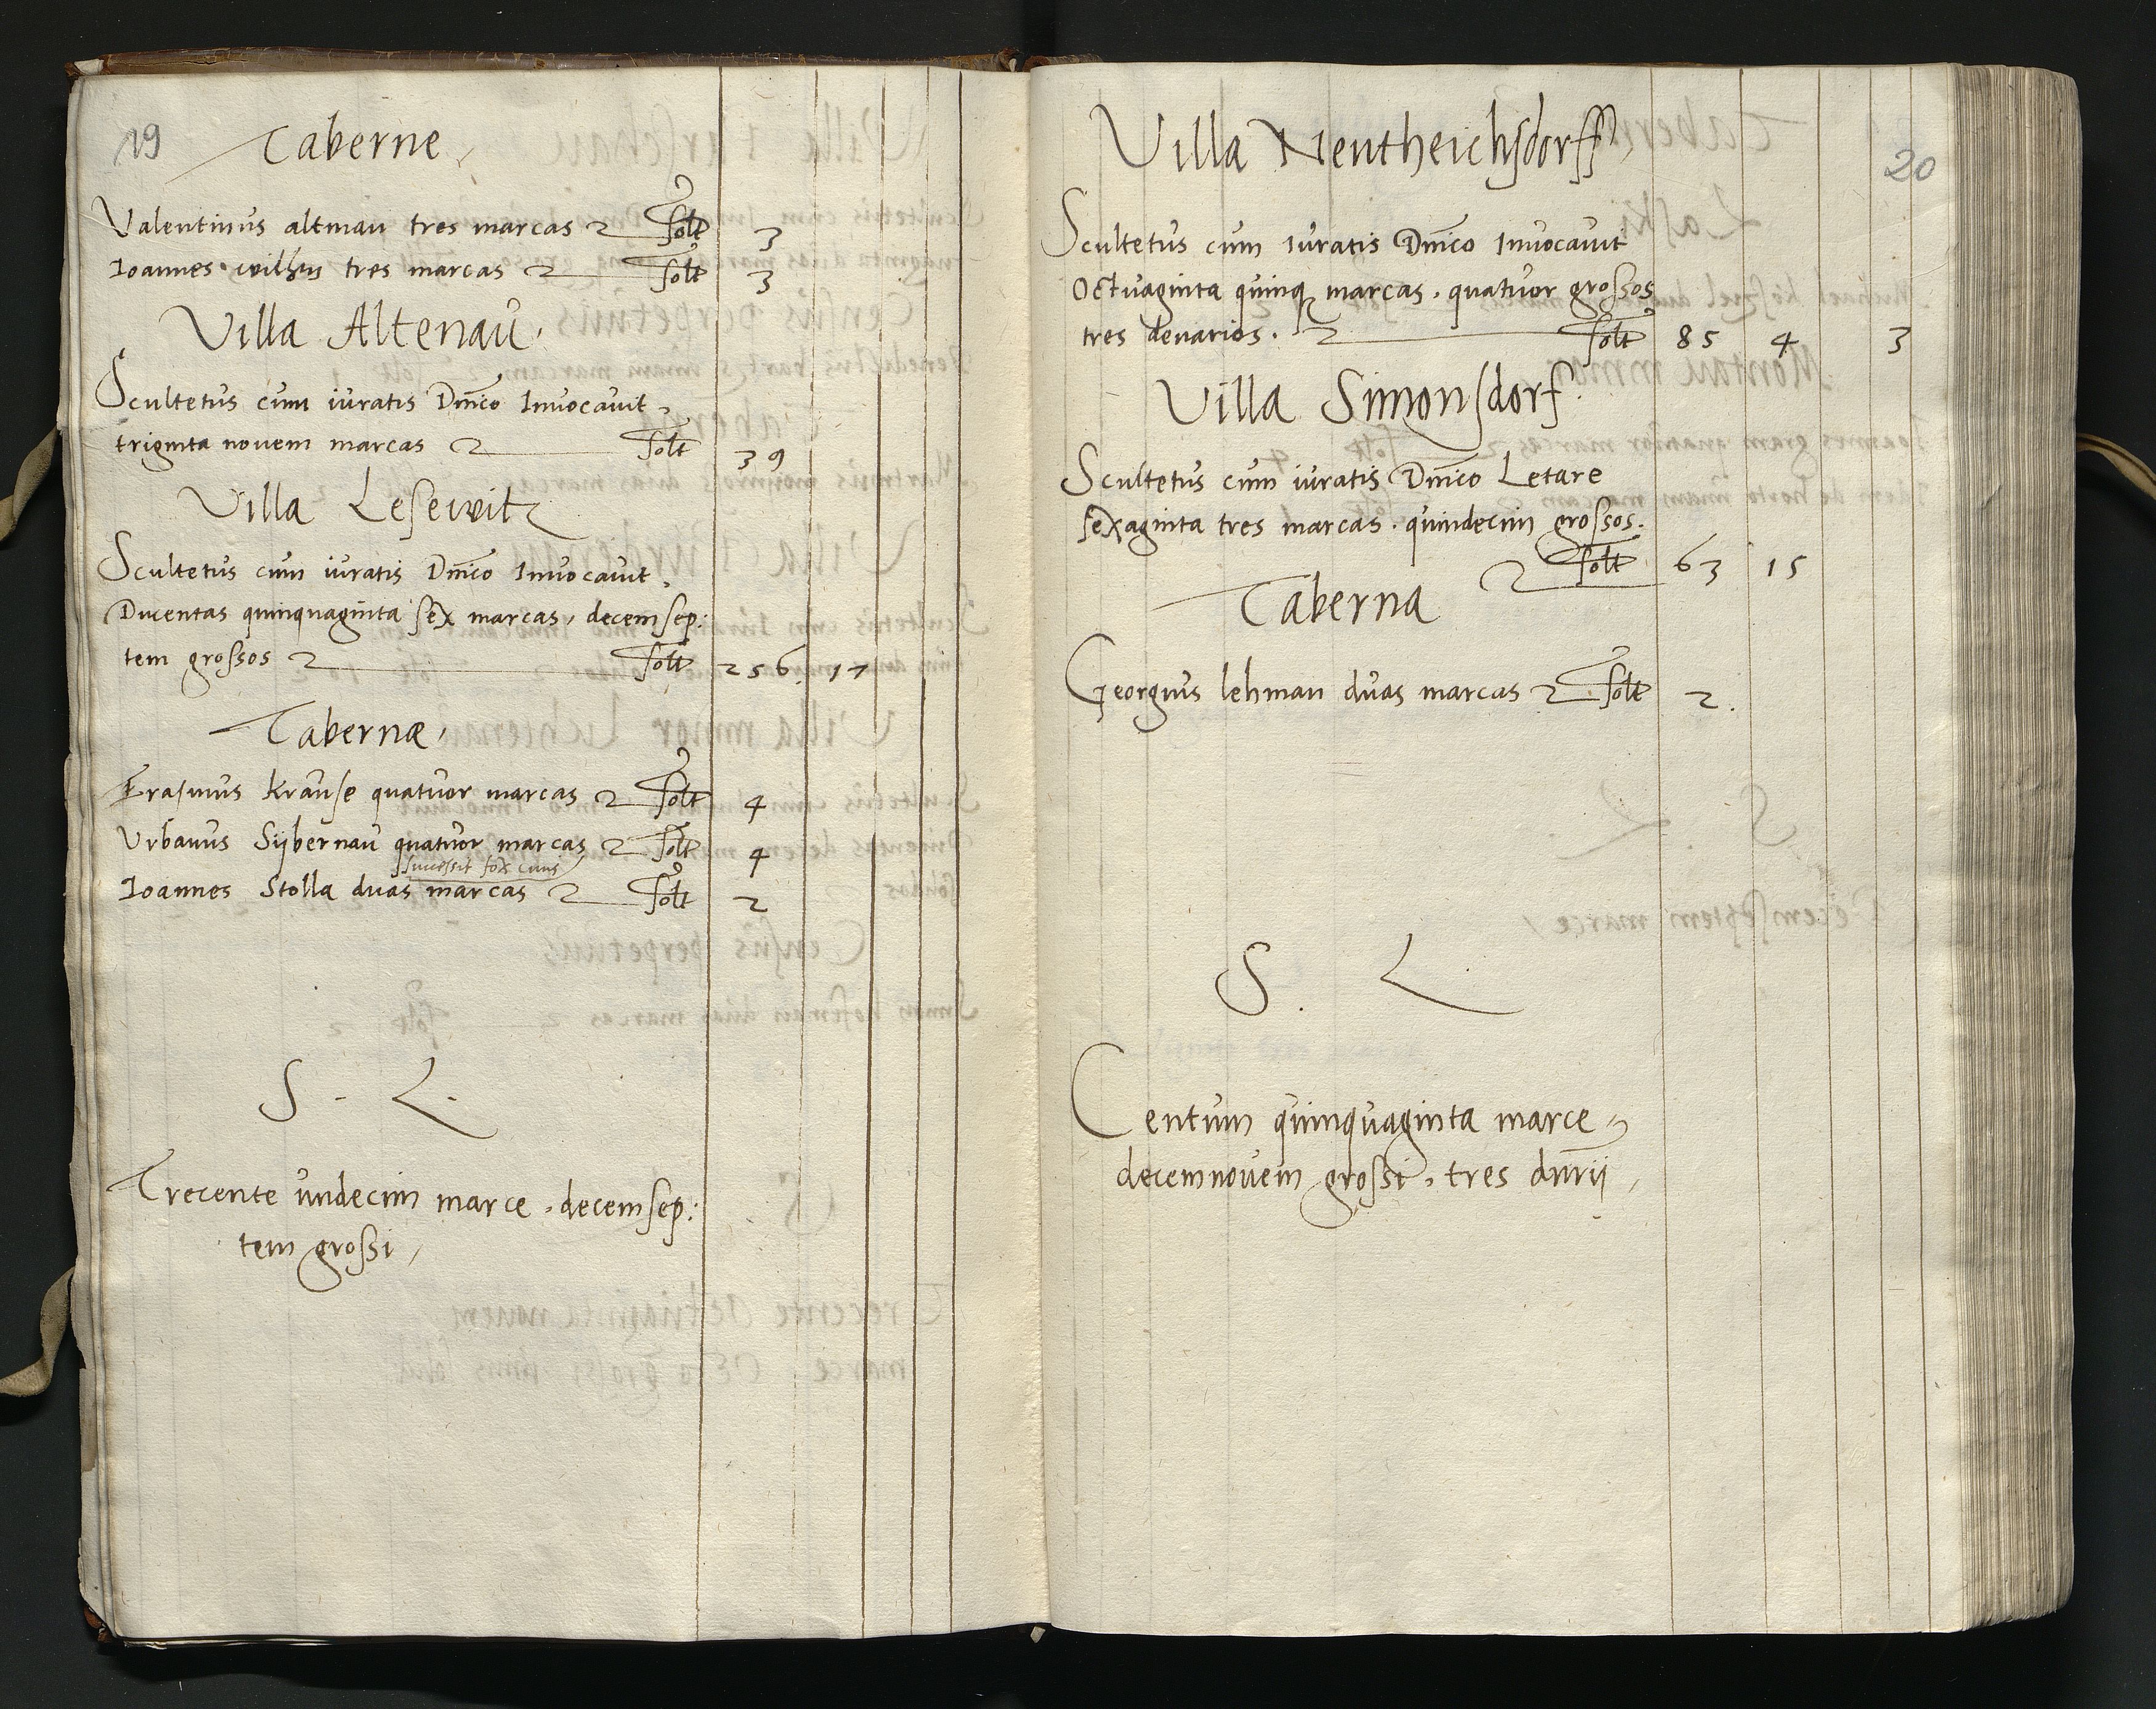 19
Taberne
Valentinus altman tres marcas solt 3
Ioannes tres marcas solt 3
Villa Altenau.
Scultetus cum iuratis Dnico Invocavit
triginta novem marcas solt 39
Villa Lesewitz
Scultetus cum iuratis Dnico Invocavit.
Ducentas quinquaginta sex marcas, decemsep:
tem grossos solt 256 17
Tabernæ
Erasmus Krause quatuor marcas solt 4
Urbanus Sybernau quatuor marcas solt 4
successit
Ioannes Stolla duas marcas solt 2
S. L.
Trecente undecim marce, decemsep:
tem grossi,
20
Villa Neutheichsdorff
Scultetus cum iuratis Dnico Invocavit
Octuaginta quinq marcas, quatuor grossos
tres denarios. solt 85 4 3
Villa Simonsdorf
Scultetus cum iuratis Dnico Letare
sexaginta tres marcas. quindecim grossos.
solt 63 15
Taberna
Georgius lehman duas marcas solt 2.
S. L
Centum quinquaginta marce
decemnovem grossi, tres dnrii,